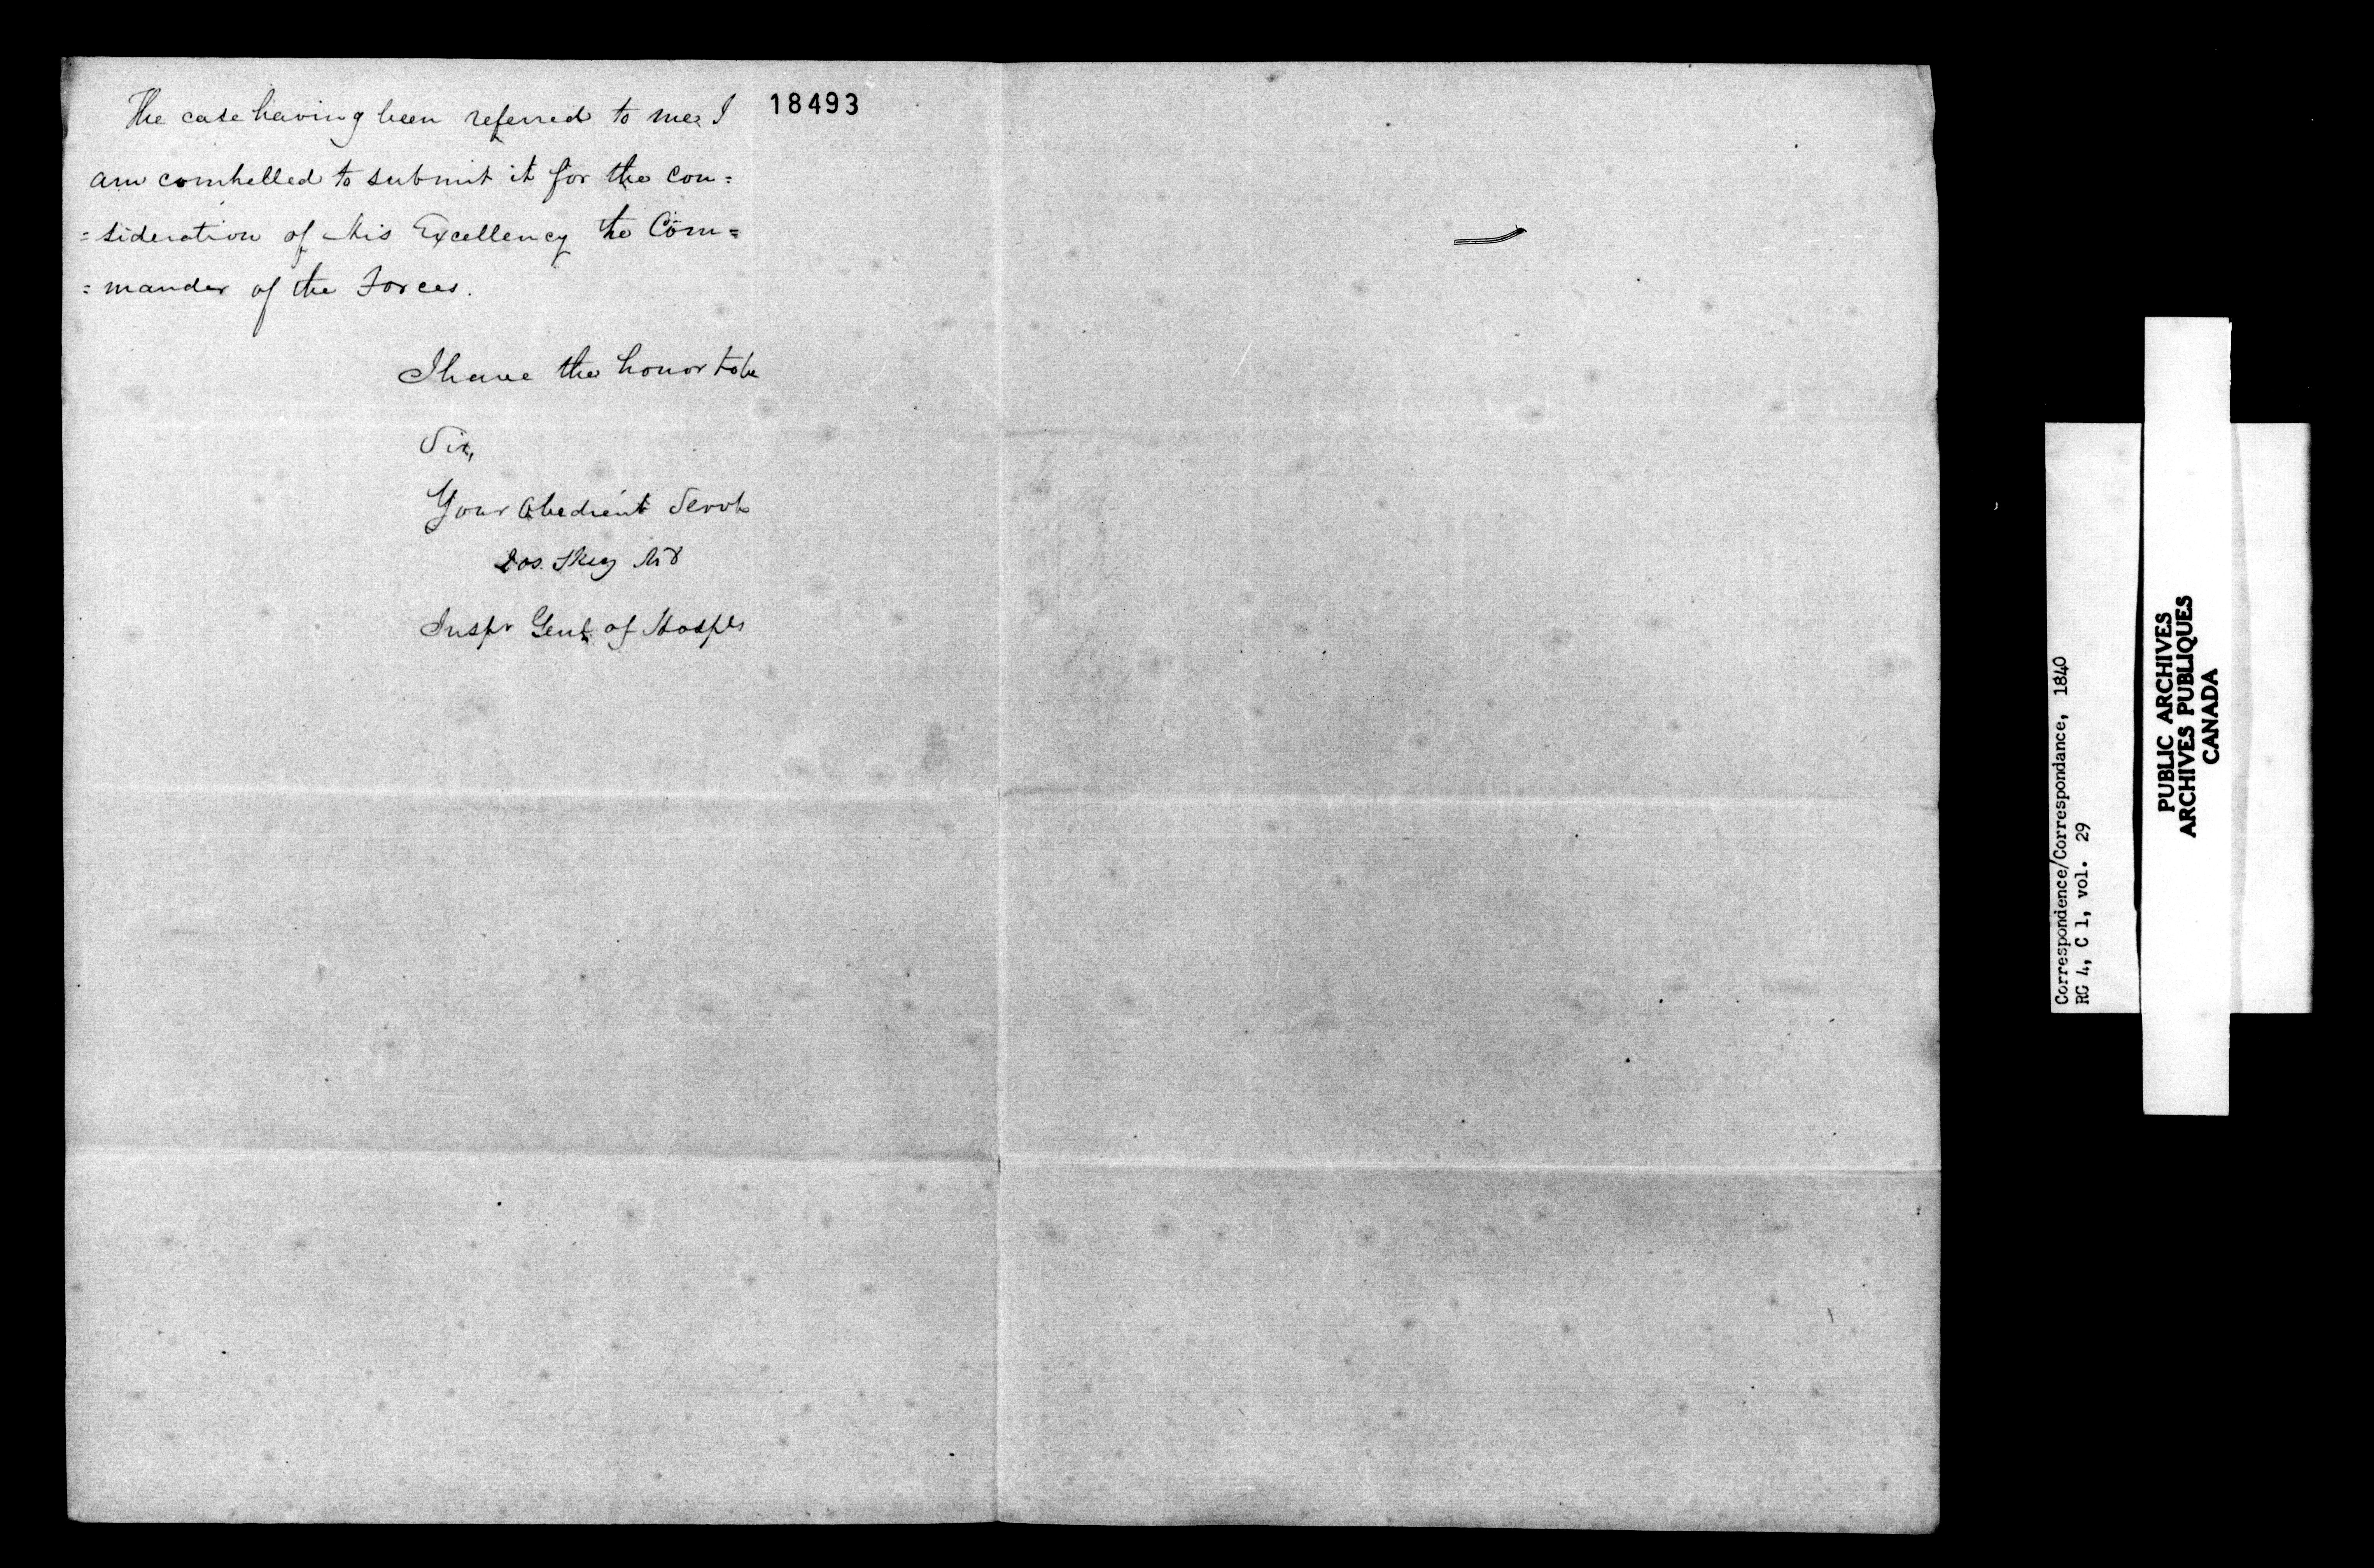 18493
The case having been referred to me, I
am compelled to submit it for the con=
=sideration of His Excellency the Com=
=mander of the Forces.
I have the honor to be
Sir,
Your Obedient Servt
Jos. Skey MD
Inspr Genl of Hospls
Correspondence/Correspondance, 1840
RG 4, C 1, vol. 29
PUBLIC ARCHIVES
ARCHIVES PUBLIQUES
CANADA